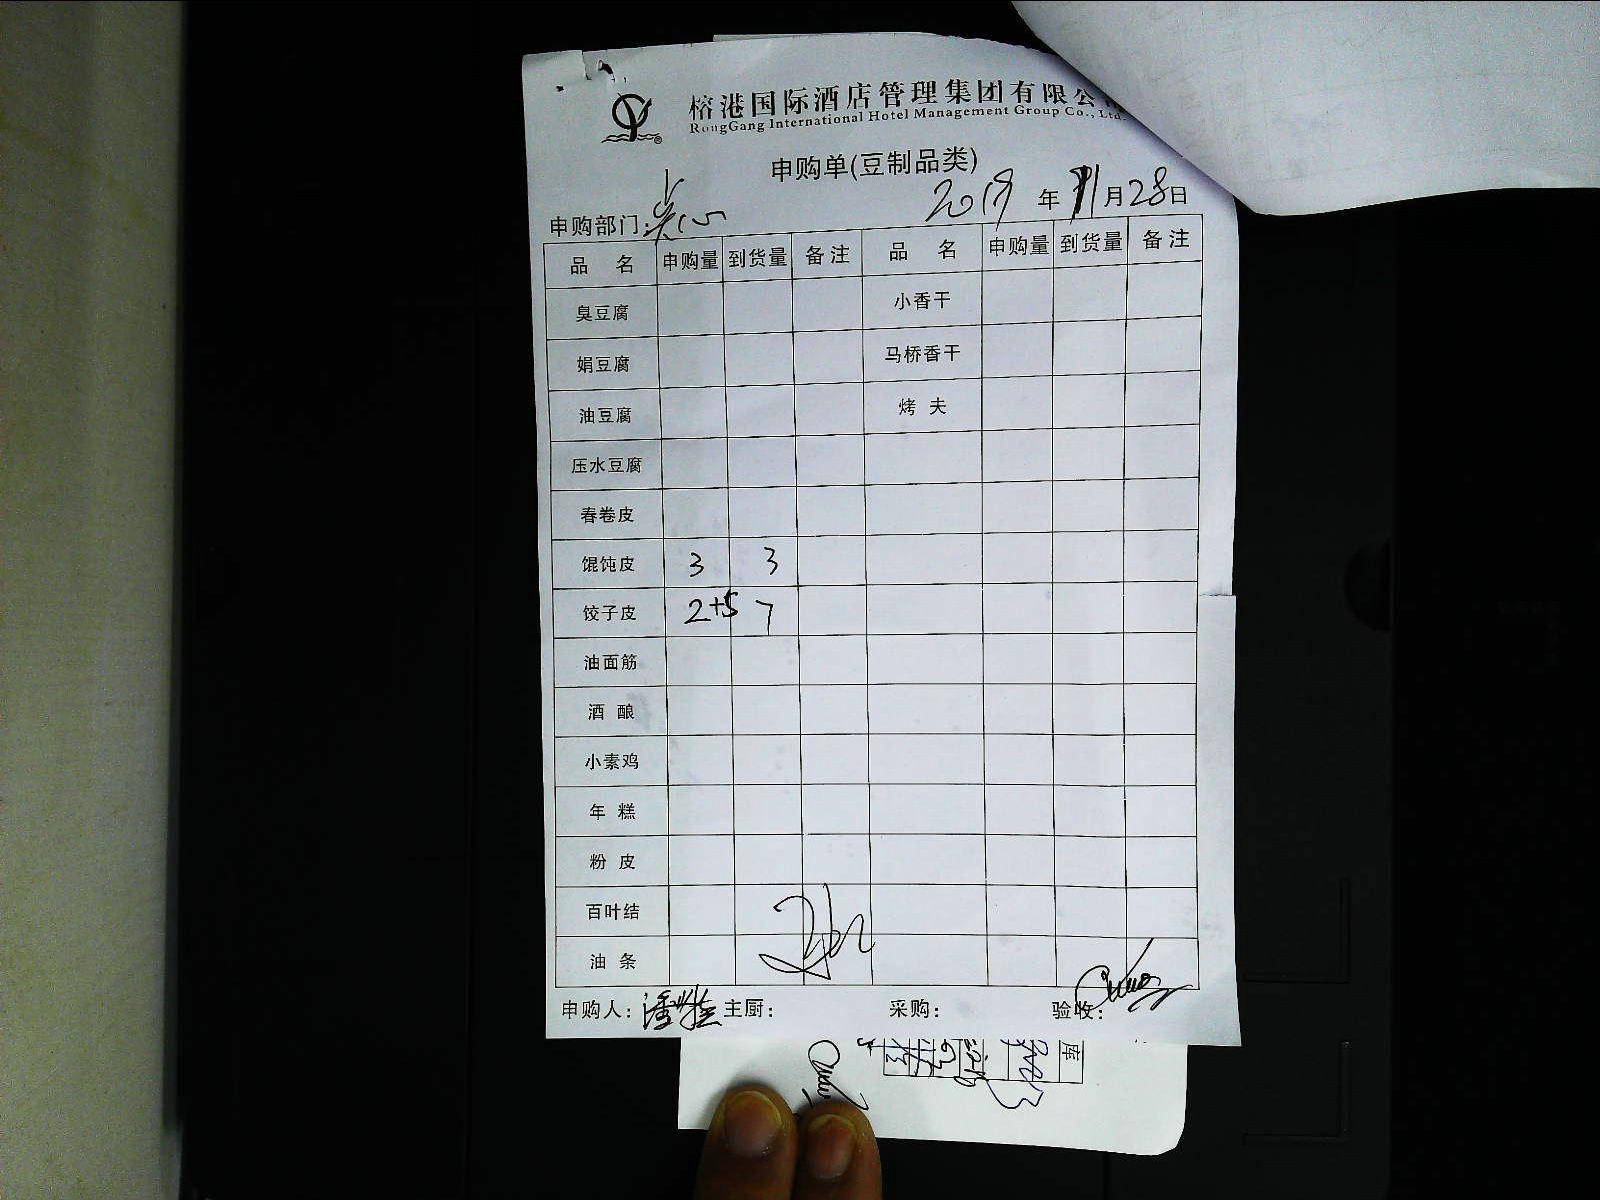 榕港国际酒店管理集团有限公
RongGang International Hotel Management Group Co., Ltd.
申购单(豆制品类)
申购部门: 点心 年 11月28日
品 名 申购量 到货量 备注 品 名 申购量 到货量 备注
臭豆腐 小香干
娟豆腐 马桥香干
油豆腐 烤 夫
压水豆腐
春卷皮
馄饨皮 3 3
饺子皮 2+5 7
油面筋
酒 酿
小素鸡
年 糕
粉 皮
百叶结
油 条
申购人: 主厨: 采购: 验收:
库